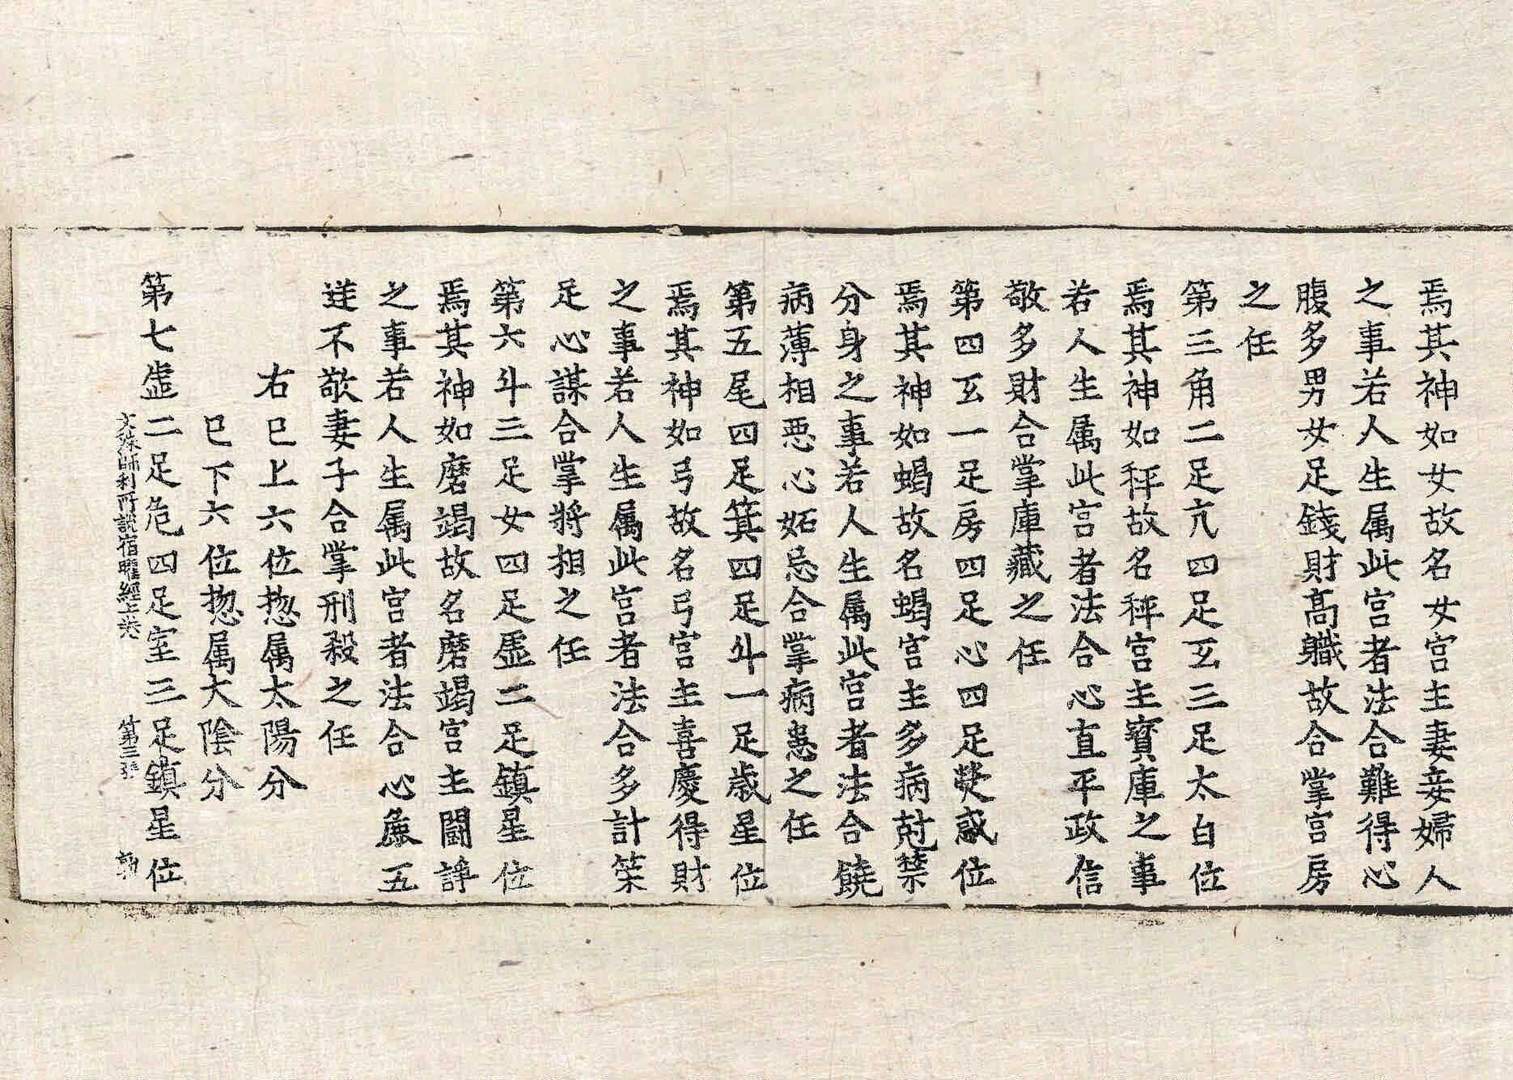 焉其神如女故名女宫主妻妾婦人
之事若人生属此宫者法合難得心
腹多男女足錢財髙軄故合掌宫房
之任
第三角二足亢四足互三足太白位
焉其神如秤故名秤宫主寳庫之事
若人生属此宫者法合心直平政信
敬多財合掌庫藏之任
第四互一足房四足心四足熒惑位
焉其神如蝎故名蝎宫主多病尅禁
分身之事若人生属此宫者法合饒
病薄相惡心妬忌合掌病患之任
第五尾四足箕四足斗一足歳星位
焉其神如弓故名弓宫主喜慶得財
之事若人生属此宫者法合多計筞
足心謀合掌將相之任
第六斗三足女四足虚二足鎮星位
焉其神如磨竭故名磨竭宫主鬪諍
之事若人生属此宫者法合心麁五
逆不敬妻子合掌刑殺之任
右巳上六位揔属太陽分
巳下六位揔属太陰分
第七虚二足危四足室三足鎮星位
文殊師利所說宿曜經上卷 第三張